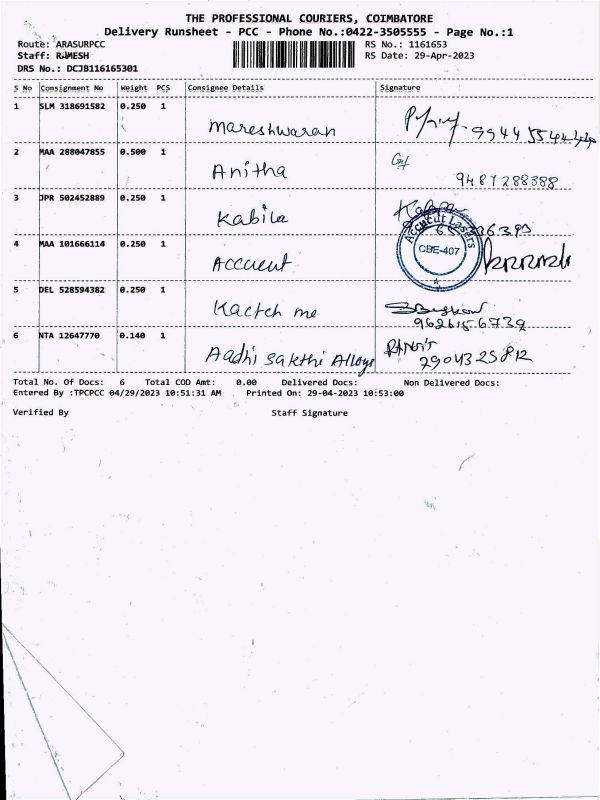 THE PROFESSIONAL COURIERS, COIMBATORE
Delivery Runsheet - PCC - Phone No.:0422-3505555 - Page No.:1
Route: ARASURPCC RS No.: 1161653
Staff: RAMESH RS Date: 29-Apr-2023
DRS No.: DCJB116165301
S No Consignment No Weight PCS Consignee Details Signature
1 SLM 318691582 0.250 1
Mareshwaran
2 MAA 288047855 0.500 1
Anitha 9487288388
3 JPR 502452889 0.250 1
Kabila
4 MAA 101666114 0.250 1
Accucut Lasers
CBE-407
Accucut
5 DEL 528594382 0.250 1
Kactch me
9626156732
6 NTA 12647770 0.140 1
Aadhi sakthi Alloys 7904325812
Total No. Of Docs: 6 Total COD Amt: 0.00 Delivered Docs: Non Delivered Docs:
Entered By :TPCPCC 04/29/2023 10:51:31 AM Printed On: 29-04-2023 10:53:00
Verified By Staff Signature